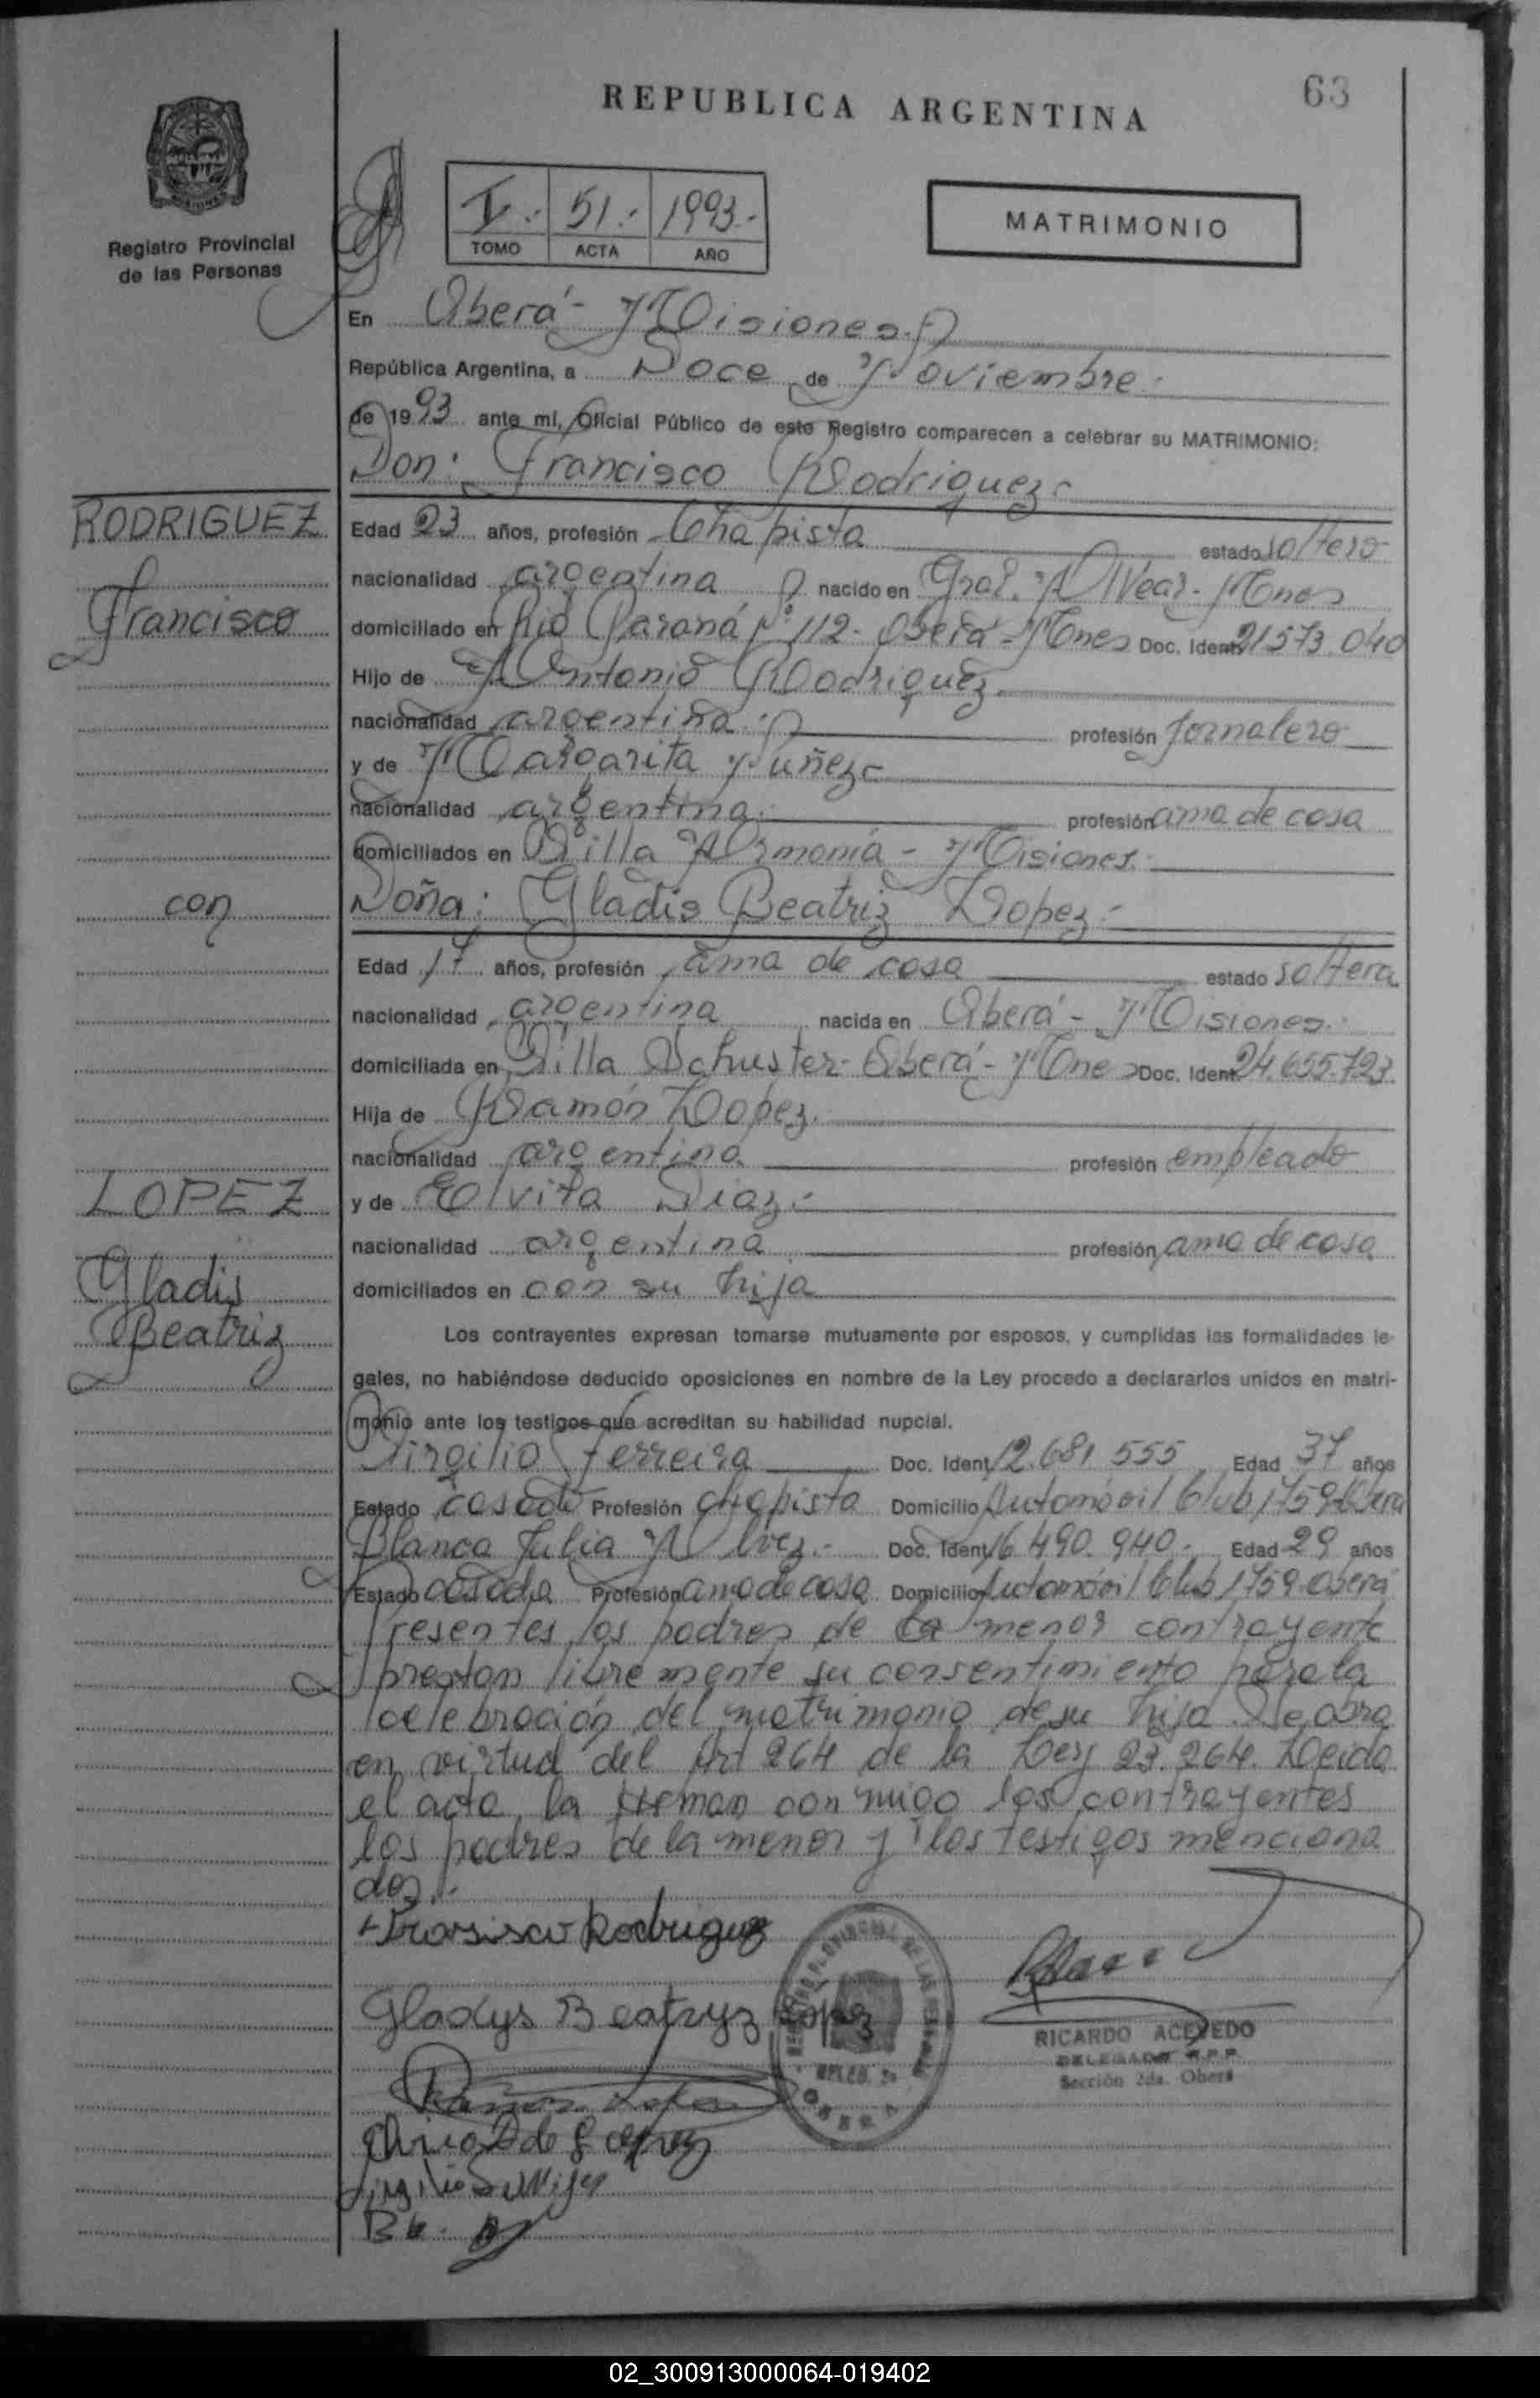 REPUBLICA ARGENTINA
63
Registro Provincial
de las Personas
I.- 51.- 1993.-
TOMO ACTA AÑO
MATRIMONIO
En Oberá - Misiones
República Argentina, a Doce de Noviembre.
de 1993 ante mi, Oficial Público de este Registro comparecen a celebrar su MATRIMONIO:
Don: Francisco Rodriguez
RODRIGUEZ
Francisco
Edad 23 años, profesión Chapista estado soltero
nacionalidad argentina nacido en Gral. Alvear - Mnes
domiciliado en Rio Paraná Nº 112 - Oberá - Mnes Doc. Ident. 21573.040
Hijo de Antonio Rodriguez.
nacionalidad argentina. profesión jornalero
y de Margarita Nuñez
nacionalidad argentina. profesión ama de casa
domiciliados en Villa Armonía - Misiones.
con
Doña: Gladis Beatriz Lopez.
Edad 17 años, profesión ama de casa estado soltera
nacionalidad argentina nacida en Oberá - Misiones.
domiciliada en Villa Schuster - Oberá - Mnes Doc. Ident. 24.655.723.
Hija de Ramón Lopez.
nacionalidad argentina profesión empleado
LOPEZ
Gladis
Beatriz
y de Elvira Diaz.
nacionalidad argentina profesión ama de casa
domiciliados en con su hija
Los contrayentes expresan tomarse mutuamente por esposos, y cumplidas las formalidades le-
gales, no habiéndose deducido oposiciones en nombre de la Ley procedo a declararlos unidos en matri-
monio ante los testigos que acreditan su habilidad nupcial.
Virgilio Ferreira Doc. Ident. 12.681.555 Edad 37 años
Estado casado Profesión chapista Domicilio Automóvil Club 1759 Oberá
Blanca Julia Alvez.- Doc. Ident. 16.490.940.- Edad 29 años
Estado casada Profesión ama de casa Domicilio Automóvil Club 1759 Oberá
Presentes los padres de la menor contrayente
prestan libremente su consentimiento para la
celebración del matrimonio de su hija. Se obra
en virtud del Art 264 de la Ley 23.264. Leida
el acta, la firman con migo los contrayentes
los padres de la menor y los testigos menciona
dos.-
Fransisco Rodriguez
Gladys Beatryz Lopez
Ramon Lopez
RICARDO ACEVEDO
DELEGADO R.P.P.
Sección 2da. Oberá
02_300913000064-019402